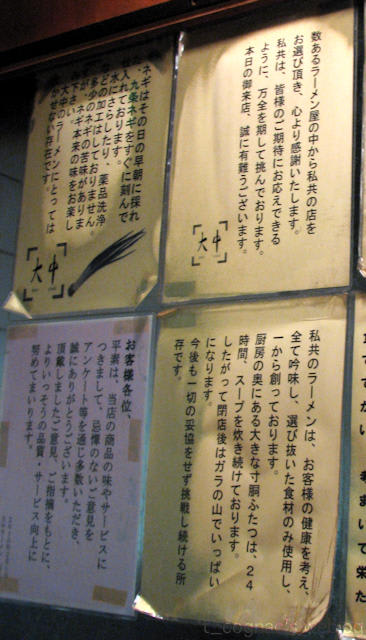 数あるラーメン屋の中から私共の店を
お選び頂き、心より感謝いたします。
私共は、皆様のご期待にお応えできる
ように、万全を期して挑んでおります。
本日の御来店、誠に有難うございます。
大中
ネギはその日の早朝に採れ
た、九条ネギをすぐに刻んで
仕入れております。
水にさらしたり、薬品洗浄
などの加工はしておりません。
多少のネギの苦味がありま
すが、ネギ本来の味をお楽し
み下さい。
大中のラーメンにとっては
欠かせない存在です。
大中
私共のラーメンは、お客様の健康を考え、
全て吟味し、選び抜いた食材のみ使用し、
一から創っております。
厨房の奥にある大きな寸胴ふたつは、24
時間、スープを炊き続けております。
したがって閉店後はガラの山でいっぱい
になります。
今後も一切の妥協をせず挑戦し続ける所
存です。
お客様各位、
平素は、当店の商品の味やサービスに
つきまして、忌憚のないご意見を
アンケート等を通じ多数いただき、
誠にありがとうございます。
頂戴しましたご意見、ご指摘をもとに、
よりいっそうの品質・サービス向上に
努めてまいります。